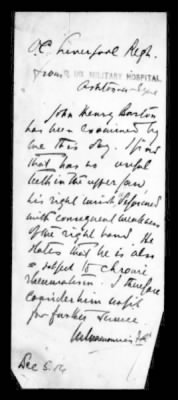 O.C. Liverpool Regt.
From MILITARY HOSPITAL,
Ashton-u-Lyne
John Henry Barton
has been examined by
me this day. I find
that has no useful
teeth in the upper jaw,
his right wrist deformed
with consequent weakness
of the right hand. He
states that he is also
subject to chronic
rheumatism. I therefore
consider him unfit
for further service
Dec 5. 14